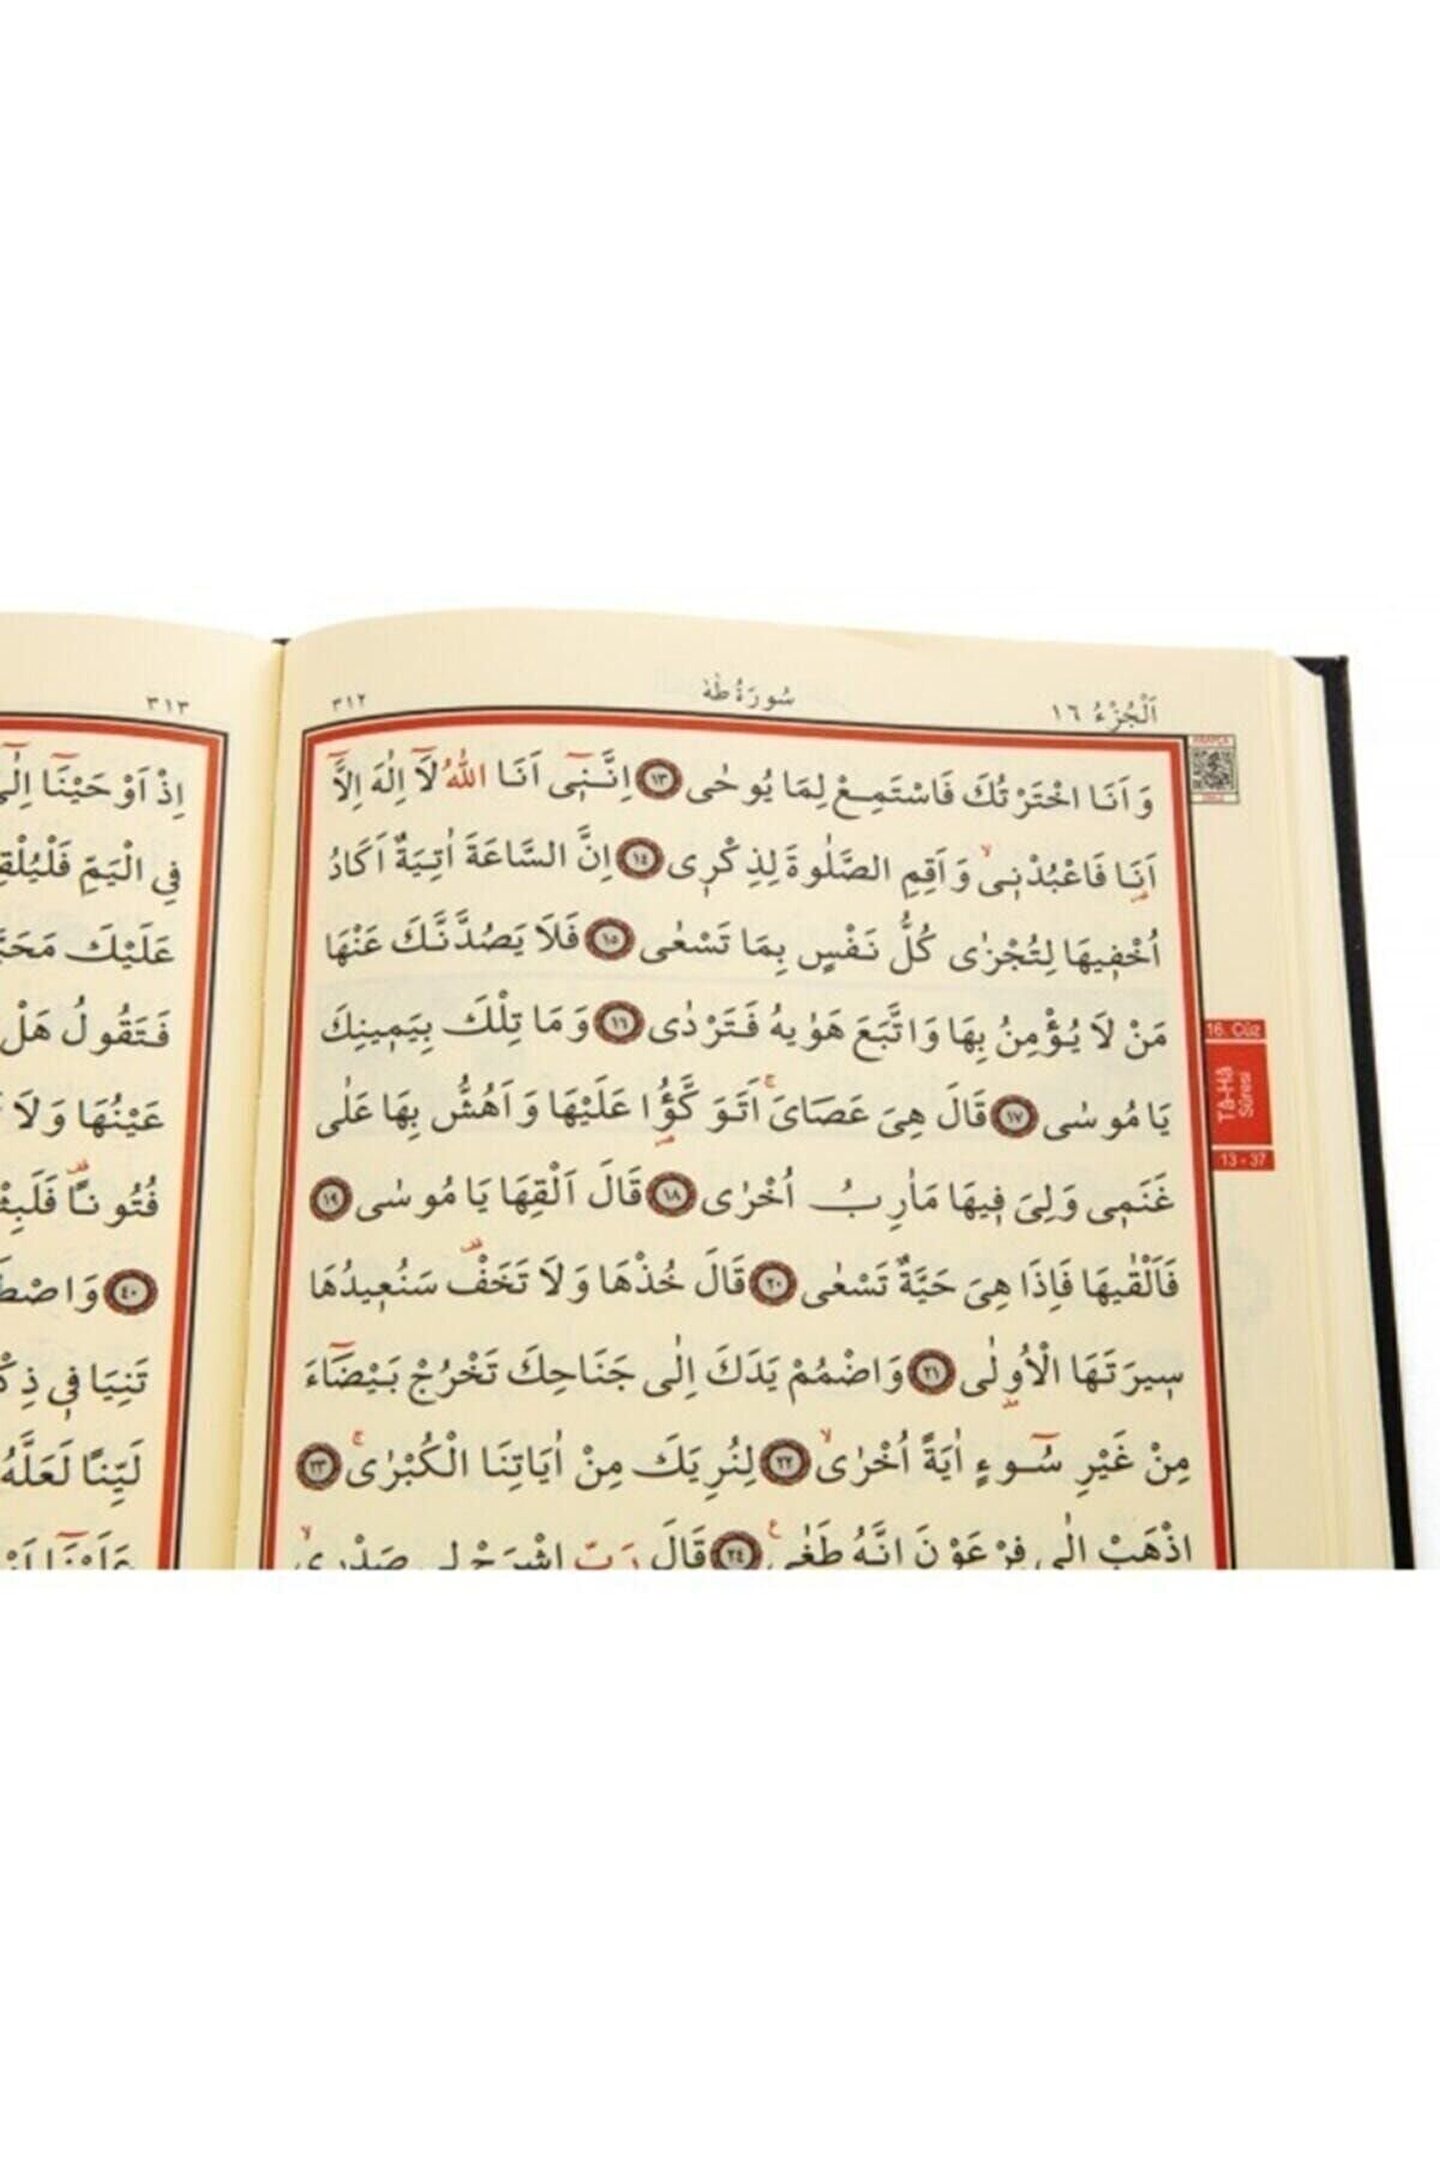 اَلْجُزْءُ ١٦
سُورَةُ طٰهٰ
٣١٢
وَاَنَا اخْتَرْتُكَ فَاسْتَمِعْ لِمَا يُوحٰى ﴿١٣﴾ اِنَّنٖٓى اَنَا اللّٰهُ لَٓا اِلٰهَ اِلَّٓا
اَنَا فَاعْبُدْنٖىۙ وَاَقِمِ الصَّلٰوةَ لِذِكْرٖى ﴿١٤﴾ اِنَّ السَّاعَةَ اٰتِيَةٌ اَكَادُ
اُخْفٖيهَا لِتُجْزٰى كُلُّ نَفْسٍ بِمَا تَسْعٰى ﴿١٥﴾ فَلَا يَصُدَّنَّكَ عَنْهَا
مَنْ لَا يُؤْمِنُ بِهَا وَاتَّبَعَ هَوٰيهُ فَتَرْدٰى ﴿١٦﴾ وَمَا تِلْكَ بِيَمٖينِكَ
يَا مُوسٰى ﴿١٧﴾ قَالَ هِىَ عَصَاىَۚ اَتَوَكَّؤُا عَلَيْهَا وَاَهُشُّ بِهَا عَلٰى
غَنَمٖى وَلِىَ فٖيهَا مَاٰرِبُ اُخْرٰى ﴿١٨﴾ قَالَ اَلْقِهَا يَا مُوسٰى ﴿١٩﴾
فَاَلْقٰيهَا فَاِذَا هِىَ حَيَّةٌ تَسْعٰى ﴿٢٠﴾ قَالَ خُذْهَا وَلَا تَخَفْ۠ سَنُعٖيدُهَا
سٖيرَتَهَا الْاُولٰى ﴿٢١﴾ وَاضْمُمْ يَدَكَ اِلٰى جَنَاحِكَ تَخْرُجْ بَيْضَٓاءَ
مِنْ غَيْرِ سُٓوءٍ اٰيَةً اُخْرٰىۙ ﴿٢٢﴾ لِنُرِيَكَ مِنْ اٰيَاتِنَا الْكُبْرٰىۚ ﴿٢٣﴾
اِذْهَبْ اِلٰى فِرْعَوْنَ اِنَّهُ طَغٰى ﴿٢٤﴾ قَالَ رَبِّ اشْرَحْ لٖى صَدْرٖىۙ
16. Cüz
Tâ-Hâ
Sûresi
13 - 37
٣١٣
اِذْ اَوْحَيْنَٓا
فِى الْيَمِّ
عَلَيْكَ
فَتَقُولُ هَلْ
عَيْنُهَا وَلَا
فُتُونًا
﴿٤٠﴾
تَنِيَا فٖى
لَيِّنًا لَعَلَّهُ
عَلَيْنَٓا